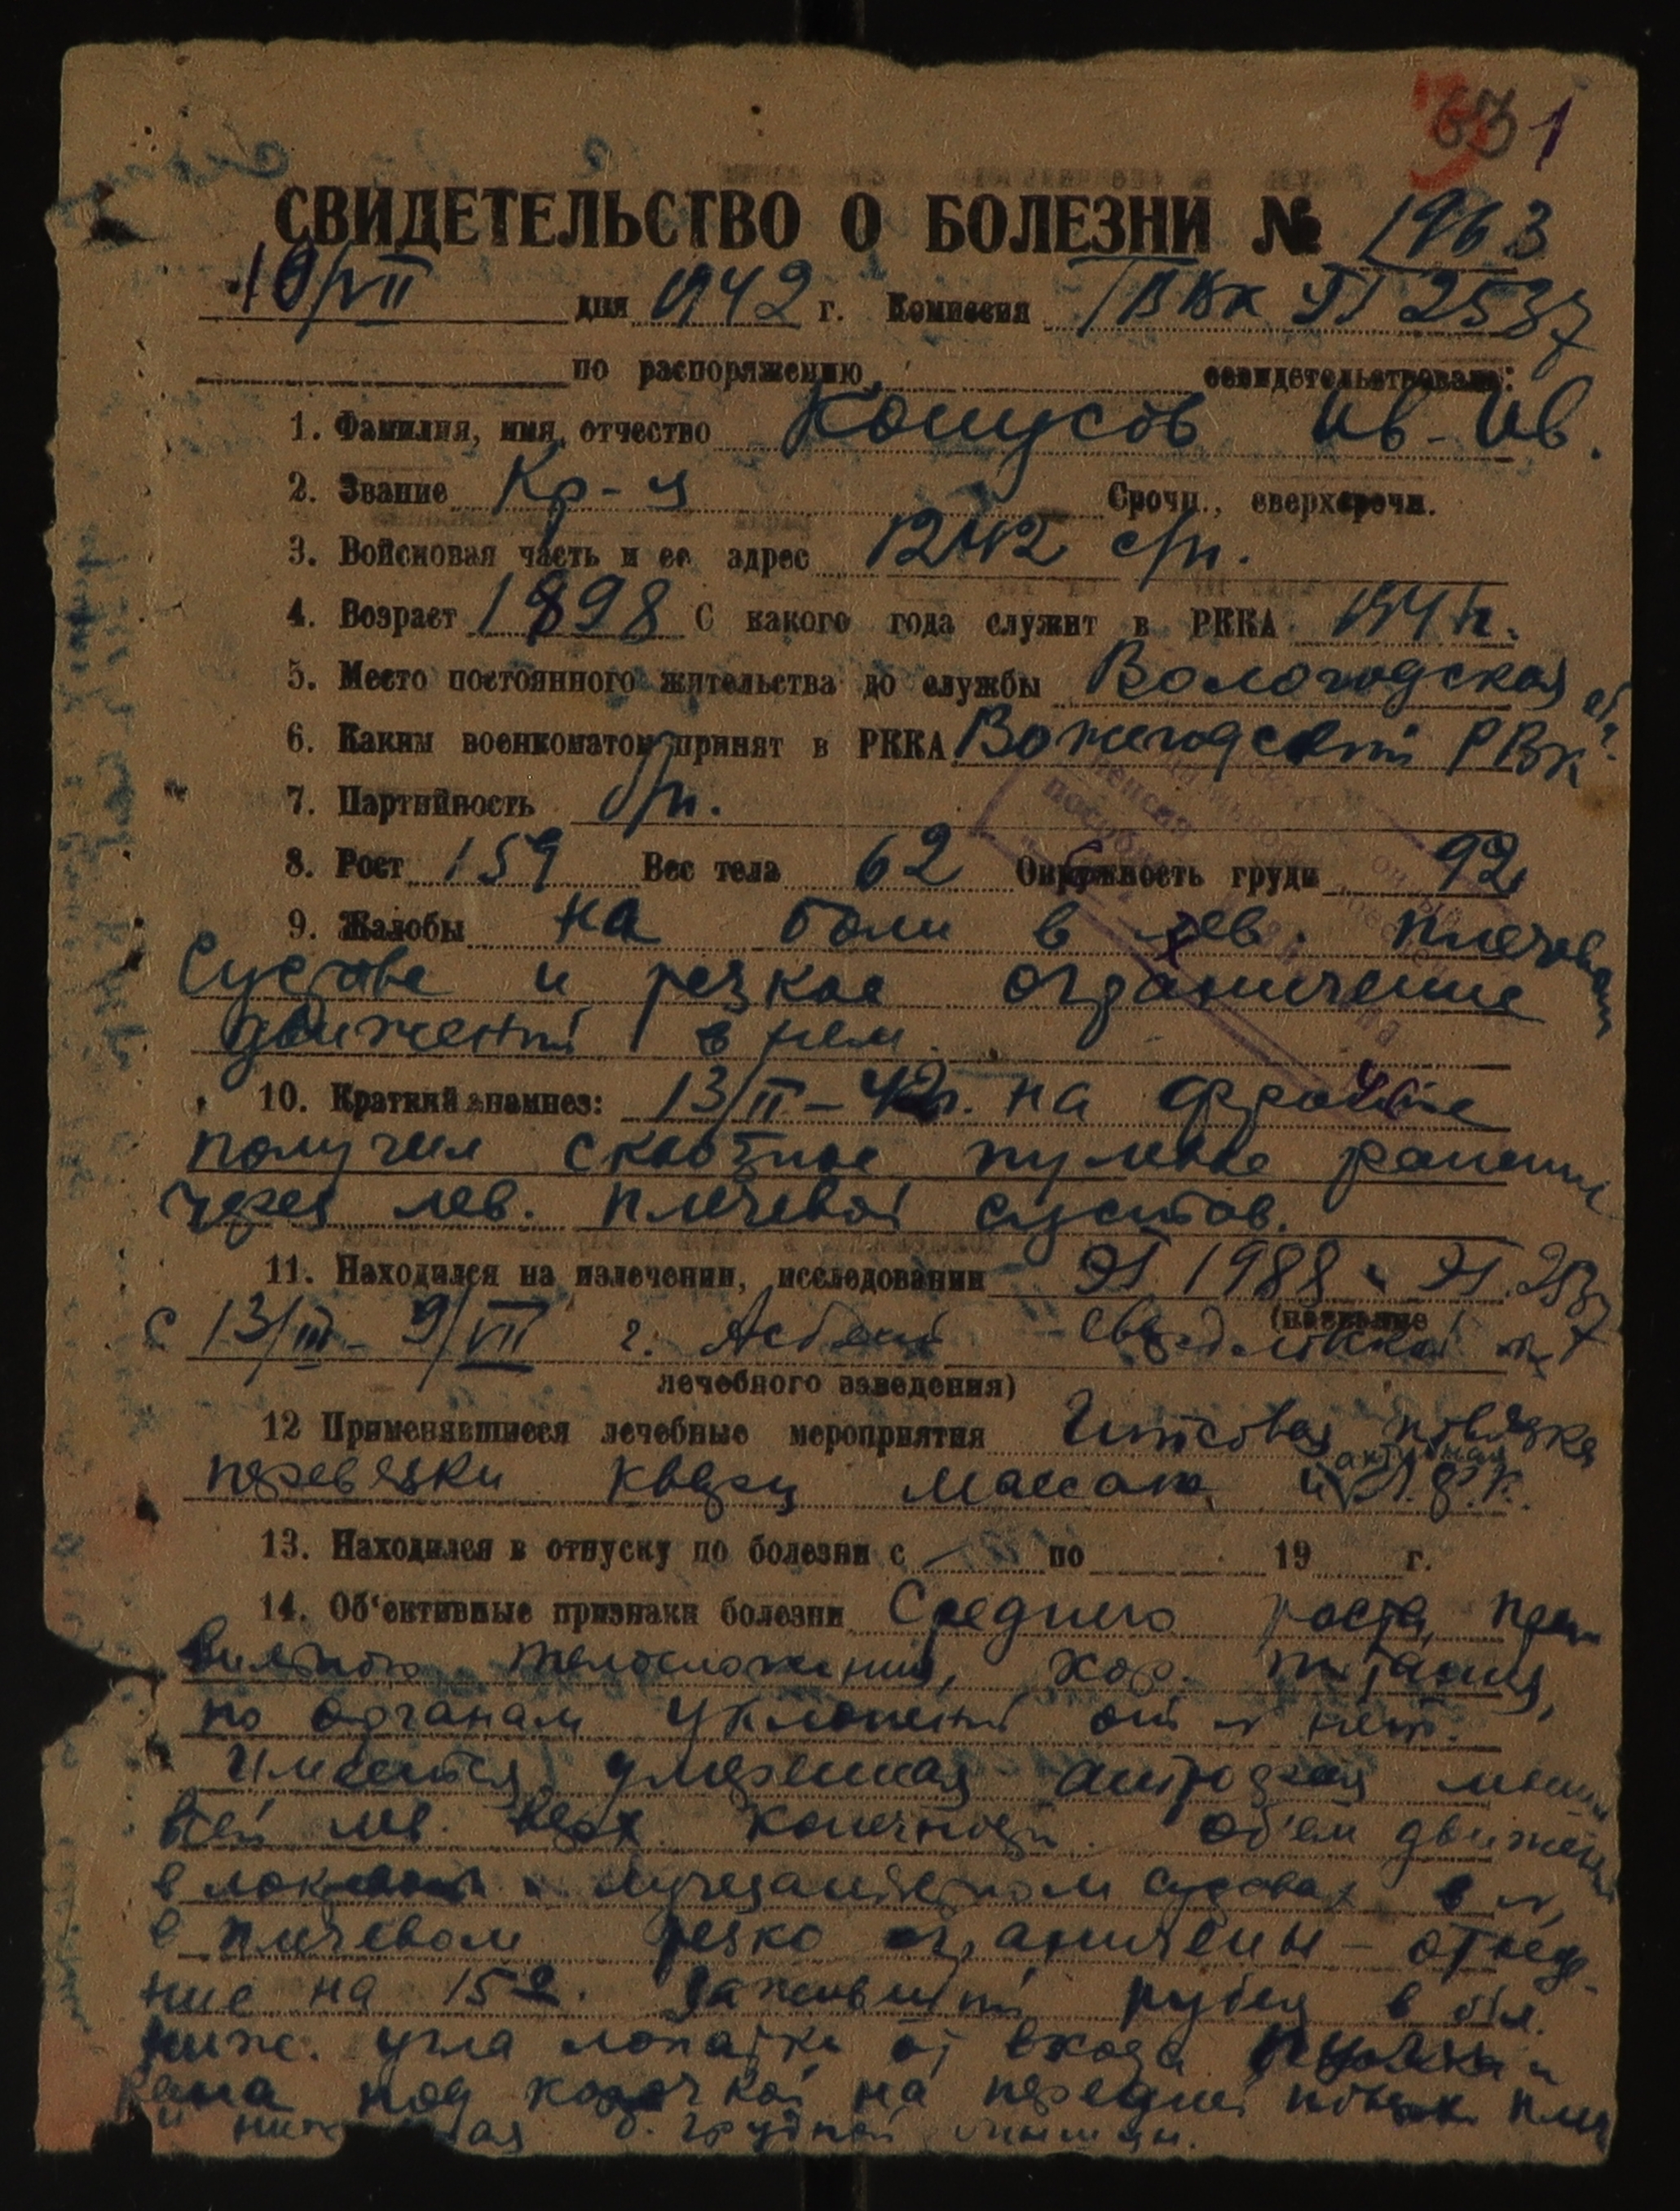 63 1
СВИДЕТЕЛЬСТВО О БОЛЕЗНИ № 1963
10/VII дня 1942 г. Комиссия ГВВК ЭГ 2537
по распоряжению свидетельствовала:
1. Фамилия, имя, отчество Конусов Ив-Ив.
2. Звание Кр-ц Срочн., сверхсрочн.
3. Войсковая часть и ее адрес 1242 с/п.
4. Возраст 1898 С какого года служит в РККА 1941 г.
5. Место постоянного жительства до службы Вологодская обл.
6. Каким военкоматом принят в РККА Вожегодский РВК
7. Партийность б/п.
8. Рост 159 Вес тела 62 Окружность груди 92
9. Жалобы на боли в лев. плечевом
суставе и резкое ограничение
движений в нем.
10. Краткий анамнез: 13/II-42г. на фронте
получил сквозное пулевое ранение
через лев. плечевой сустав.
11. Находился на излечении, исследовании ЭГ 1988 и ЭГ. 2537
(название
с 13/III - 9/VII г. Асбест Свердловской
лечебного заведения)
12 Применявшиеся лечебные мероприятия Гипсовая повязка
перевязки кварц массаж и активная Л.Ф.К.
13. Находился в отпуску по болезни с по 19 г.
14. Об'ективные признаки болезни Среднего роста, пра-
вильного телосложения, хор. питания,
по органам уклонений от N нет.
Имеется умеренная атрофия мышц
всей лев. верх. конечности. Об'ем движений
в локтевом и лучезапястном суставах в N,
в плечевом резко ограничены - отведе-
ние на 15°. Заживший рубец в обл.
ниж. угла лопатки от входа
рана под корочкой на передней поверх.
б. грудной мышцы.